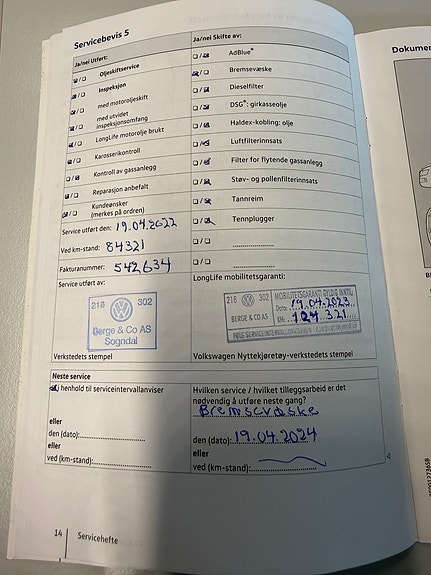 Servicebevis 5
Ja/nei Utført:
Oljeskiftservice
Inspeksjon
med motoroljeskift
med utvidet
inspeksjonsomfang
LongLife motorolje brukt
Karosserikontroll
Kontroll av gassanlegg
Reparasjon anbefalt
Kundeønsker
(merkes på ordren)
Service utført den: 19.04.2022
Ved km-stand: 84321
Fakturanummer: 542634
Service utført av:
218 302
Berge & Co AS
Sogndal
Verkstedets stempel
Ja/nei Skifte av:
AdBlue®
Bremsevæske
Dieselfilter
DSG®: girkasseolje
Haldex-kobling: olje
Luftfilterinnsats
Filter for flytende gassanlegg
Støv- og pollenfilterinnsats
Tannreim
Tennplugger
LongLife mobilitetsgaranti:
218 302
BERGE & CO AS
MOBILITETSGARANTI GYLDIG INNTIL:
Dato: 19.04.2023
KM: 124 321
Volkswagen Nyttekjøretøy-verkstedets stempel
Neste service
I henhold til serviceintervallanviser
eller
den (dato):
eller
ved (km-stand):
Hvilken service / hvilket tilleggsarbeid er det
nødvendig å utføre neste gang?
Bremsevæske
den (dato): 19.04.2024
eller
ved (km-stand):
14 Servicehefte
Dokumen